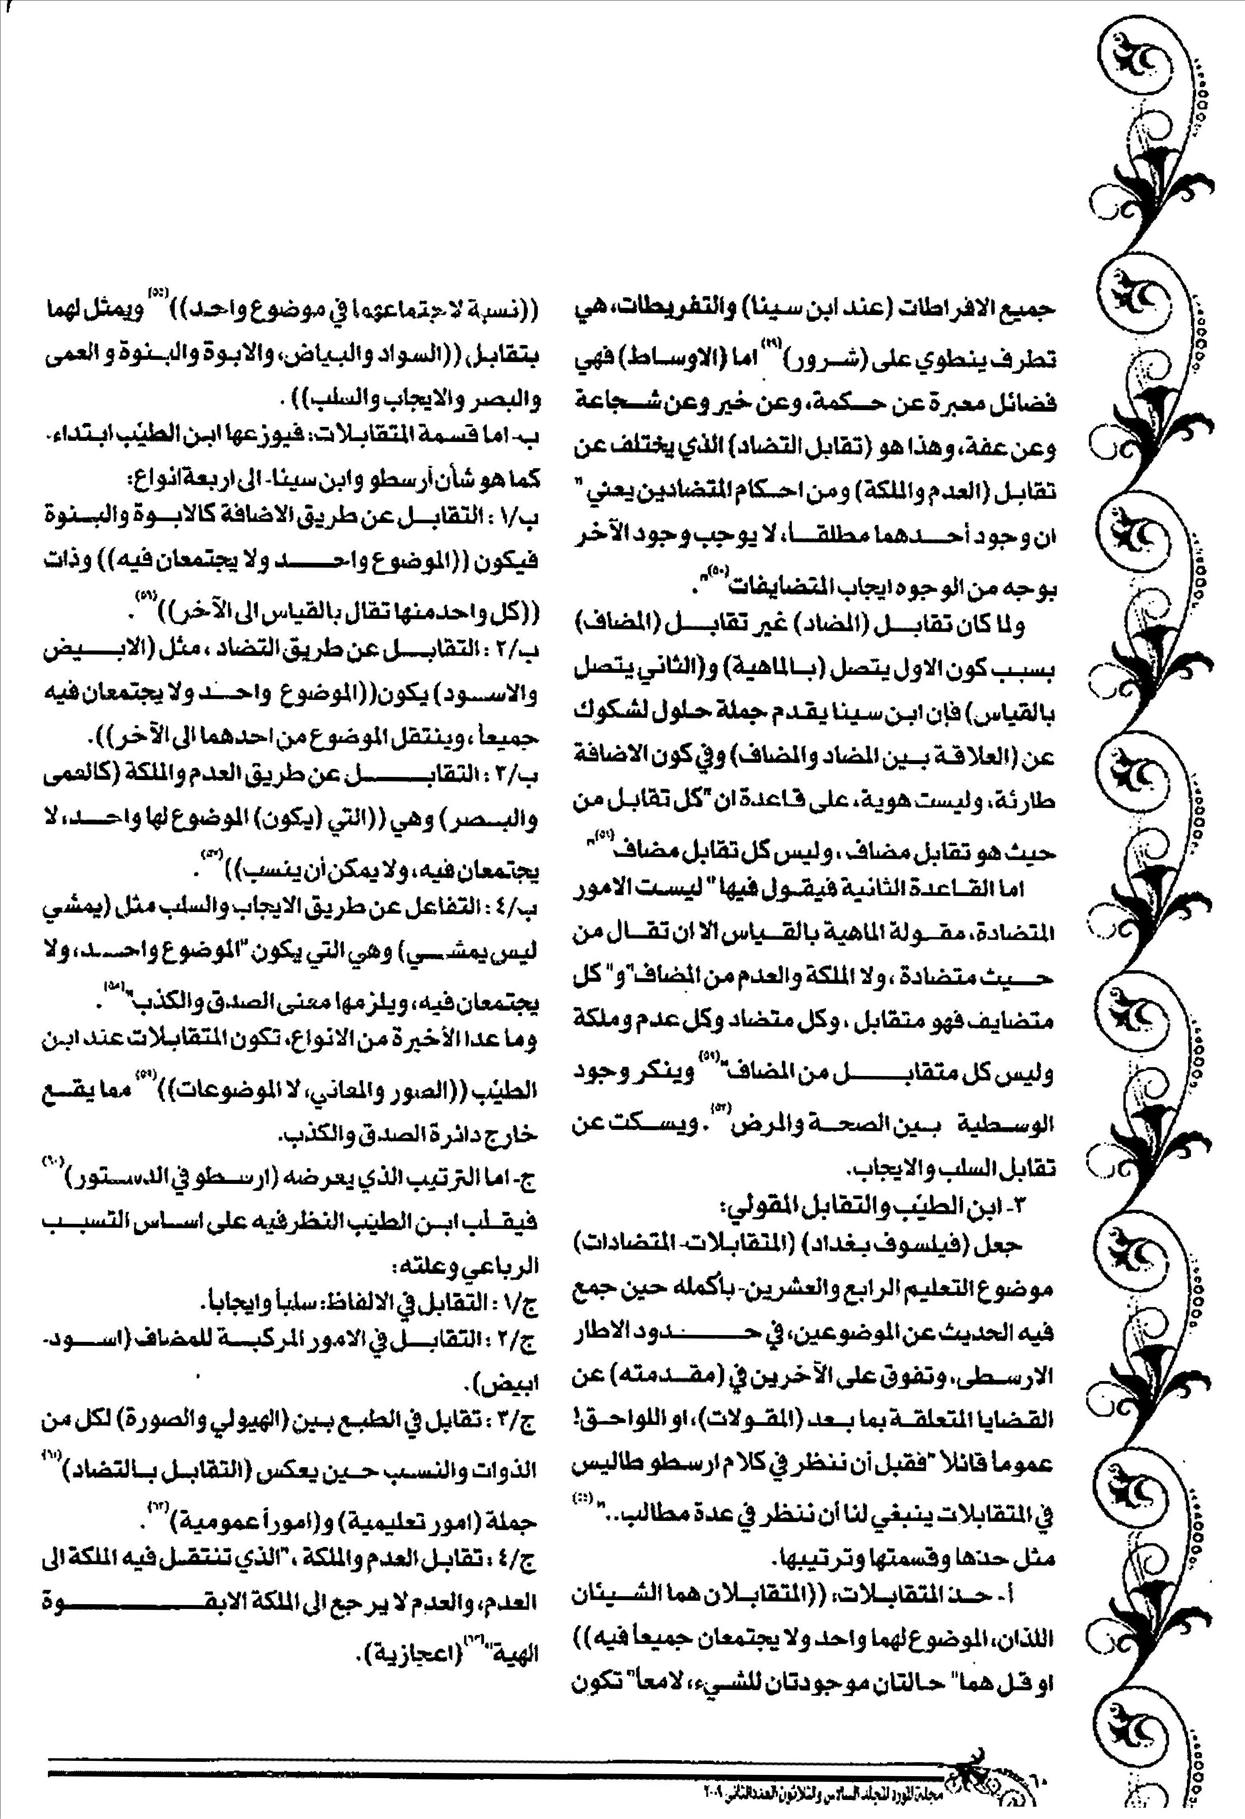 جميع الافراطات (عند ابن سينا) والتفريطات، هي
تطرف ينطوي على (شرور)(٤٩) اما (الاوساط) فهي
فضائل معبرة عن حكمة، وعن خير وعن شجاعة
وعن عفة، وهذا هو (تقابل التضاد) الذي يختلف عن
تقابل (العدم والملكة) ومن احكام المتضادين يعني "
ان وجود أحدهما مطلقاً، لا يوجب وجود الآخر
بوجه من الوجوه ايجاب المتضايفات(٥٠)".
ولما كان تقابل (المضاد) غير تقابل (المضاف)
بسبب كون الاول يتصل (بالماهية) و(الثاني يتصل
بالقياس) فإن ابن سينا يقدم جملة حلول لشكوك
عن (العلاقة بين المضاد والمضاف) وفي كون الاضافة
طارئة، وليست هوية، على قاعدة ان "كل تقابل من
حيث هو تقابل مضاف، وليس كل تقابل مضاف(٥١)"
اما القاعدة الثانية فيقول فيها "ليست الامور
المتضادة، مقولة الماهية بالقياس الا ان تقال من
حيث متضادة، ولا الملكة والعدم من المضاف"و"كل
متضايف فهو متقابل، وكل متضاد وكل عدم وملكة
وليس كل متقابل من المضاف"(٥٢) وينكر وجود
الوسطية بين الصحة والمرض(٥٣). ويسكت عن
تقابل السلب والايجاب.
٣- ابن الطيّب والتقابل المقولي:
جعل (فيلسوف بغداد) (المتقابلات-المتضادات)
موضوع التعليم الرابع والعشرين-بأكمله حين جمع
فيه الحديث عن الموضوعين، في حدود الاطار
الارسطي، وتفوق على الآخرين في (مقدمته) عن
القضايا المتعلقة بما بعد (المقولات)، او اللواحق!
عموماً قائلاً "فقبل أن ننظر في كلام ارسطو طاليس
في المتقابلات ينبغي لنا أن ننظر في عدة مطالب.."(٥٤)
مثل حدّها وقسمتها وترتيبها.
أ- حدّ المتقابلات: ((المتقابلان هما الشيئان
اللذان، الموضوع لهما واحد ولا يجتمعان جميعاً فيه))
او قل هما" حالتان موجودتان للشيء، لا معاً" تكون
((نسبة لا جتماعهما في موضوع واحد))(٥٥) ويمثل لهما
بتقابل ((السواد والبياض، والابوة والبنوة و العمى
والبصر والايجاب والسلب)).
ب- اما قسمة المتقابلات: فيوزعها ابن الطيّب ابتداء-
كما هو شأن أرسطو وابن سينا- الى اربعة انواع:
ب/١: التقابل عن طريق الاضافة كالابوة والبنوة
فيكون ((الموضوع واحد ولا يجتمعان فيه)) وذات
((كل واحد منها تقال بالقياس الى الآخر))(٥٦).
ب/٢: التقابل عن طريق التضاد، مثل (الابيض
والاسود) يكون((الموضوع واحد ولا يجتمعان فيه
جميعاً، وينتقل الموضوع من احدهما الى الآخر)).
ب/٣: التقابل عن طريق العدم والملكة (كالعمى
والبصر) وهي ((التي (يكون) الموضوع لها واحد، لا
يجتمعان فيه، ولا يمكن أن ينسب))(٥٧).
ب/٤: التفاعل عن طريق الايجاب والسلب مثل (يمشي
ليس يمشي) وهي التي يكون "الموضوع واحد، ولا
يجتمعان فيه، ويلزمها معنى الصدق والكذب"(٥٨).
وما عدا الأخيرة من الانواع، تكون المتقابلات عند ابن
الطيّب ((الصور والمعاني، لا الموضوعات))(٥٩) مما يقع
خارج دائرة الصدق والكذب.
ج- اما الترتيب الذي يعرضه (ارسطو في الدستور)(٦٠)
فيقلب ابن الطيّب النظر فيه على اساس التسبب
الرباعي وعلته:
ج/١: التقابل في الالفاظ: سلباً وايجاباً.
ج/٢: التقابل في الامور المركبة للمضاف (اسود-
ابيض).
ج/٣: تقابل في الطبع بين (الهيولي والصورة) لكل من
الذوات والنسب حين يعكس (التقابل بالتضاد)(٦١)
جملة (امور تعليمية) و(اموراً عمومية)(٦٢).
ج/٤: تقابل العدم والملكة، "الذي تنتقل فيه الملكة الى
العدم، والعدم لا يرجع الى الملكة الا بقوة
الهية"(٦٣) (اعجازية).
٦٠
مجلة المورد المجلد السادس والثلاثون العدد الثاني ٢٠٠٩